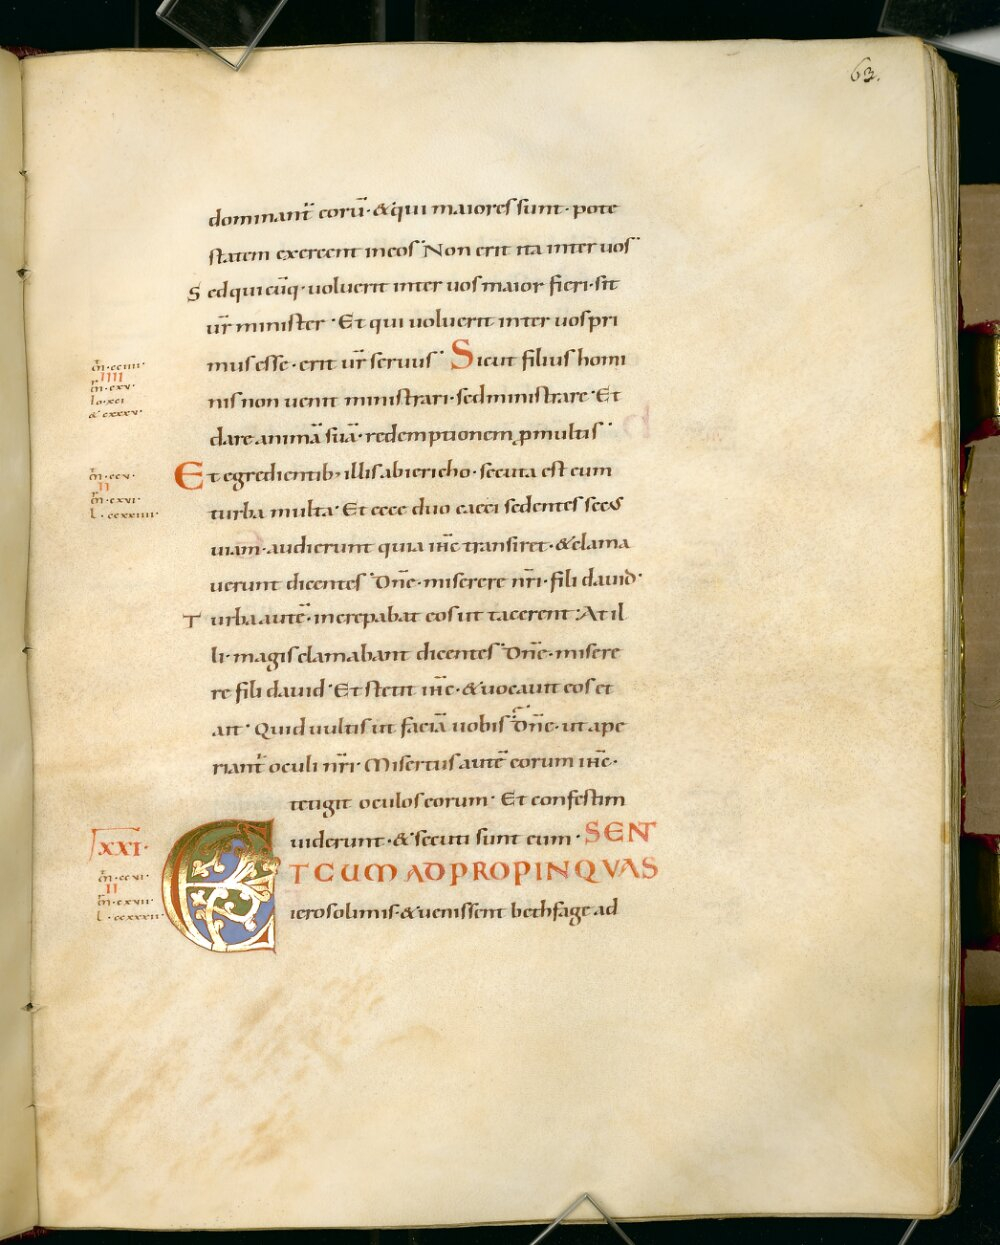 63.
dominant̄ corū·&qui maiores sunt·pote
statem exercent in eos Non erit ita inter uos
Sed qui cūq·uoluerit inter uos maior fieri·sit
ur̄ minister·Et qui uoluerit inter uos pri
mus esse·erit ur̄ seruus· Sicut filius homi
m̄·cciiii·
IIII
m̄r·cxv·
lo·xci
& cxxxv·
nis non uenit ministrari·sed ministrare·Et
dare animā suā·redemptionem ꝓmultis·
Et egredientib; illis abiericho·secuta est eum
m̄·ccv·
II
m̄r·cxvi·
l·ccxxiiii·
turba multa·Et ecce duo caeci sedentes secꝰ
uiam·audierunt quia ih̄c transiret·&clama
uerunt dicentes Dn̄e·miserere nr̄i·fili dauid·
Turba autē·increpabat eos ut tacerent·At il
li·magis clamabant dicentes Dn̄e·misere
re fili dauid·Et stetit ih̄c·&uocauit eos et
ait·Quid uultis ut faciā uobis Dn̄e·ut ape
riant̄ oculi nr̄i·Misertus autē eorum ih̄c·
tetigit oculos eorum·Et confestim
uiderunt·&secuti sunt eum·SENT
XXI·
ET CUM ADPROPINQVAS
m̄·ccvi·
II
m̄r·cxvii·
l·ccxxxii·
ierosolimis·&uenissent bethfage ad